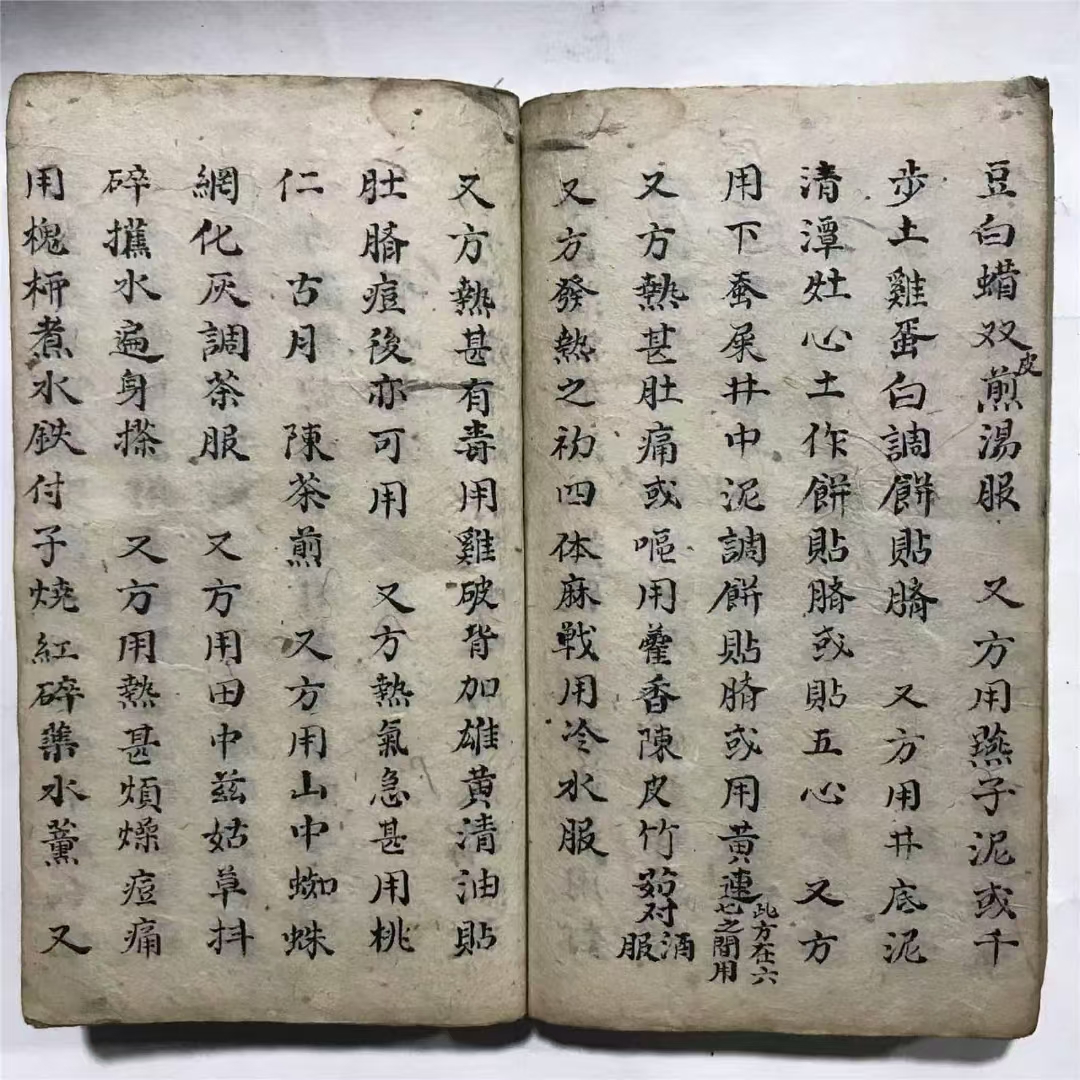 豆白蜡双皮煎湯服　又方用燕子泥或千
步土雞蛋白調餅貼臍　又方用井底泥
清潭灶心土作餅貼臍或貼五心　又方
用下蚕屎井中泥調餅貼臍或用黄連此方在六七之間用
又方熱甚肚痛或嘔用藿香陳皮竹茹对酒服
又方發熱之初四体麻戰用冷水服
又方熱甚有毒用雞破背加雄黄清油貼
肚臍痘後亦可用　又方熱氣急甚用桃
仁　古月　陳茶煎　又方用山中蜘蛛
網化灰調茶服　又方用田中兹姑草抖
碎攥水遍身搽　又方用熱甚煩燥痘痛
用槐柳煮水鉄付子燒紅碎藥水薰　又